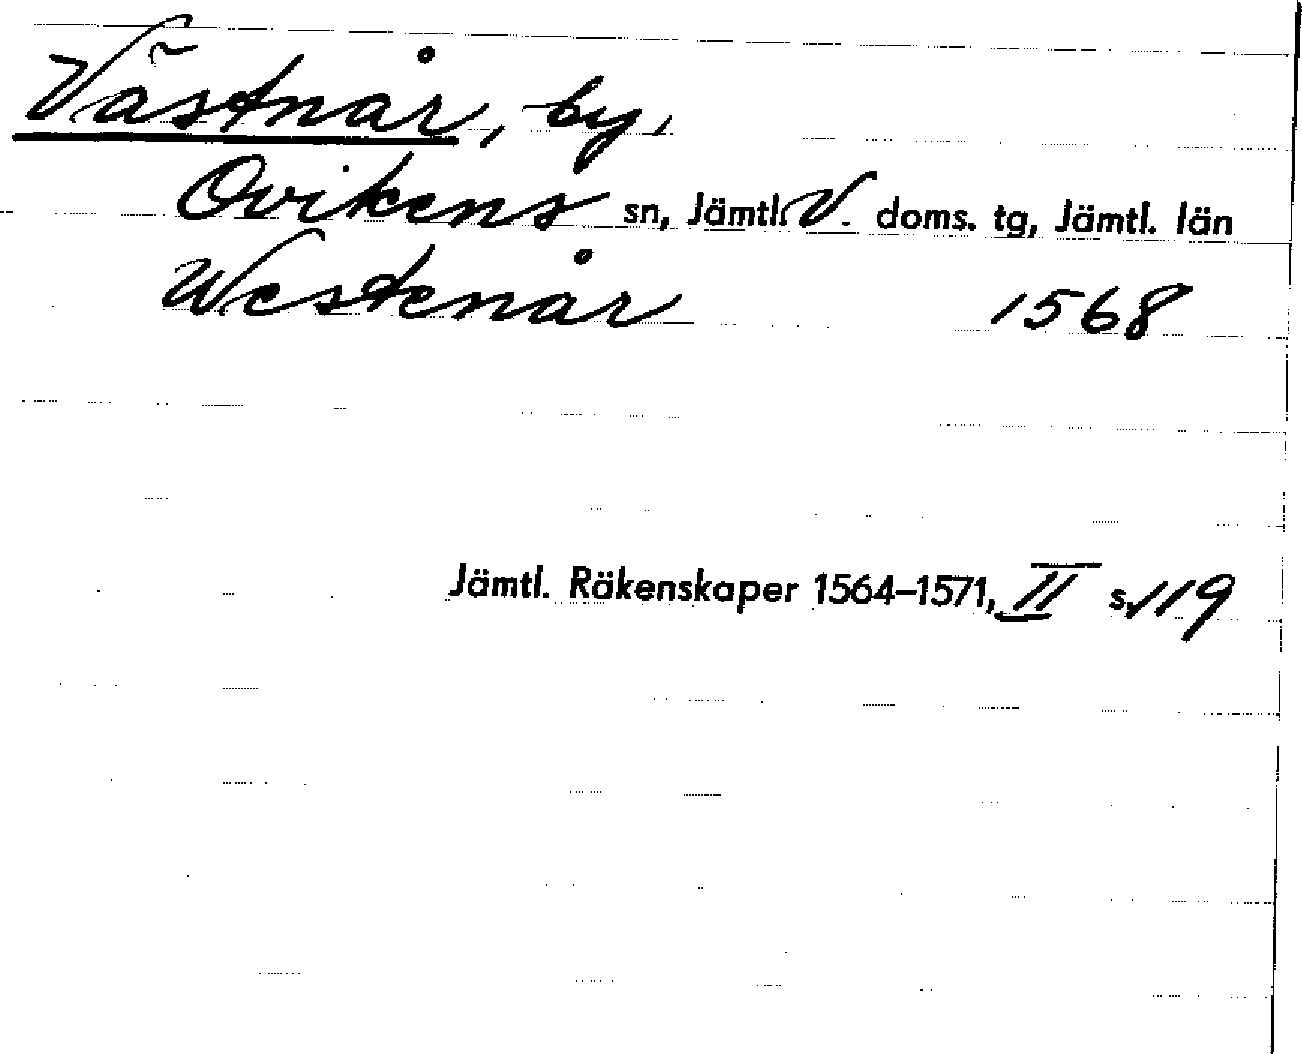 Västnår, by,
Ovikens sn, Jämtl. V. doms. tg, Jämtl. län
Westenår 1568
Jämtl. Räkenskaper 1564–1571, II s. 119